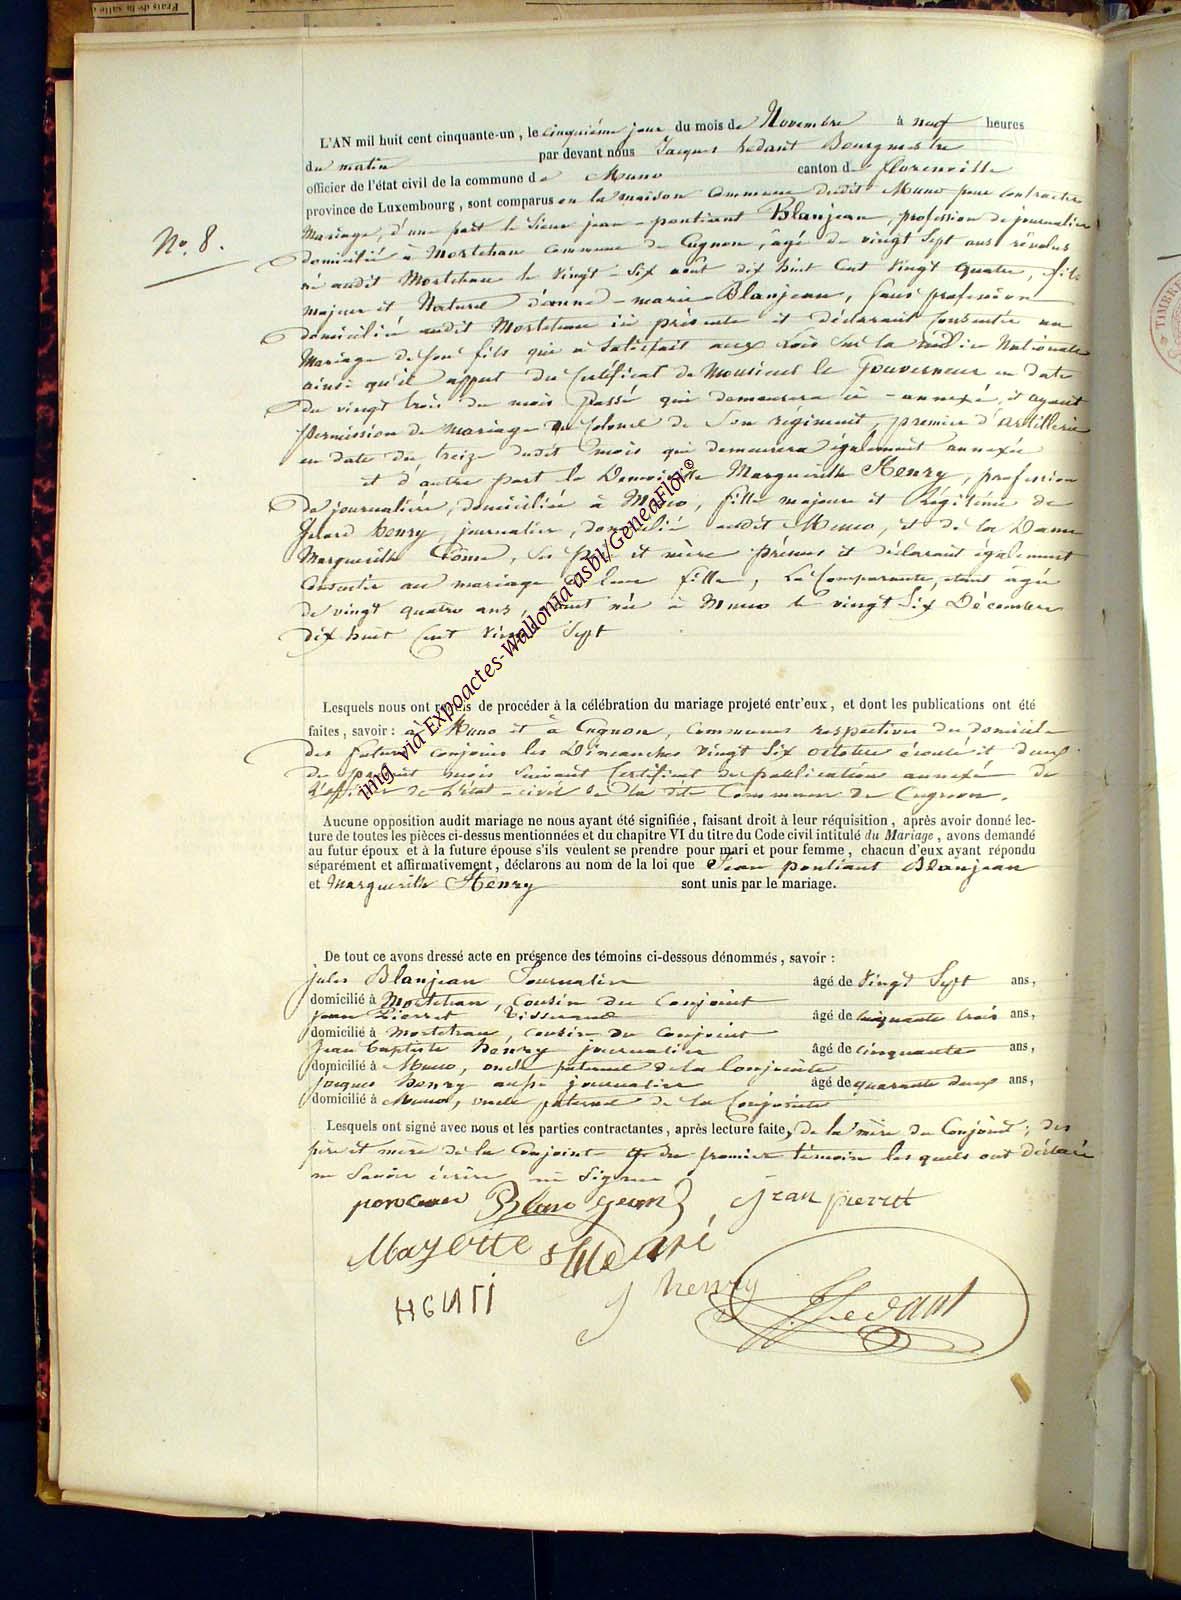 Frais de la salle
L'AN mil huit cent cinquante-un, le cinquième jour du mois de Novembre à neuf heures
du matin par devant nous Jacques Ledant Bourgmestre
officier de l'état civil de la commune de Muno canton de florenville
province de Luxembourg, sont comparus en la maison Commune dudit Muno pour contracter
Mariage, d'une part le Sieur jean-pontiant Blanjean, profession de journalier
domicilié à Mortehan commune de Cugnon, âgé de vingt Sept ans révolus
né audit Mortehan le Vingt-Six août dix huit Cent Vingt quatre, fils
majeur et Naturel d'anne-marie Blanjean, Sans profession
domiciliée audit Mortehan ici présente et déclarant Consentir au
Mariage de Son fils qui a Satisfait aux Lois Sur la milice Nationale
ainsi qu'il appert du Certificat de Monsieur le Gouverneur en date
du vingt trois du mois passé qui demeurera ci-annexé, et ayant
permission de mariage du Colonel de Son régiment, premier d'artillerie
en date du treize dudit mois qui demeurera également annexée
et d'autre part la Demoiselle Marguerithe Henry, profession
de journalière, domiciliée à Muno, fille majeure et légitime de
Henry, journalier, domicilié audit Muno, et de la Dame
Marguerithe ses père et mère présens et déclarant également
Consentir au mariage de leur fille, La Comparante, étant âgée
de vingt quatre ans, étant née à Muno le vingt Six Décembre
dix huit Cent Vingt Sept
N°. 8.
Lesquels nous ont requis de procéder à la célébration du mariage projeté entr'eux, et dont les publications ont été
faites, savoir: à Muno et à Cugnon, Communes respectives du domicile
des futurs conjoints les Dimanches Vingt Six octobre écoulé et deux
du présent mois Suivant Certificat de publication annexé de
L'officier de l'état-civil de la dite Commune de Cugnon.
Aucune opposition audit mariage ne nous ayant été signifiée, faisant droit à leur réquisition, après avoir donné lec-
ture de toutes les pièces ci-dessus mentionnées et du chapitre VI du titre du Code civil intitulé du Mariage, avons demandé
au futur époux et à la future épouse s'ils veulent se prendre pour mari et pour femme, chacun d'eux ayant répondu
séparément et affirmativement, déclarons au nom de la loi que Jean pontiant Blanjean
et Marguerithe Henry sont unis par le mariage.
De tout ce avons dressé acte en présence des témoins ci-dessous dénommés, savoir:
jules Blanjean Journalier âgé de Vingt Sept ans,
domicilié à Mortehan, Cousin du Conjoint
jean Pierret Tisserand âgé de cinquante trois ans,
domicilié à Mortehan cousin du Conjoint
Jean baptiste henry journalier âgé de cinquante ans,
domicilié à Muno, oncle paternel de la Conjointe
jacques henry aussi journalier âgé de quarante deux ans,
domicilié à Muno, oncle paternel de la Conjointe
Lesquels ont signé avec nous et les parties contractantes, après lecture faite, de la mère du Conjoint; des
père et mère de la Conjointe & du premier témoin lesquels ont déclaré
ne Savoir écrire ni Signer
Blanogean jean pierret
henry
J Ledant
img via Expoactes-Wallonia asbl/GeneaFlor©
TIMBRE